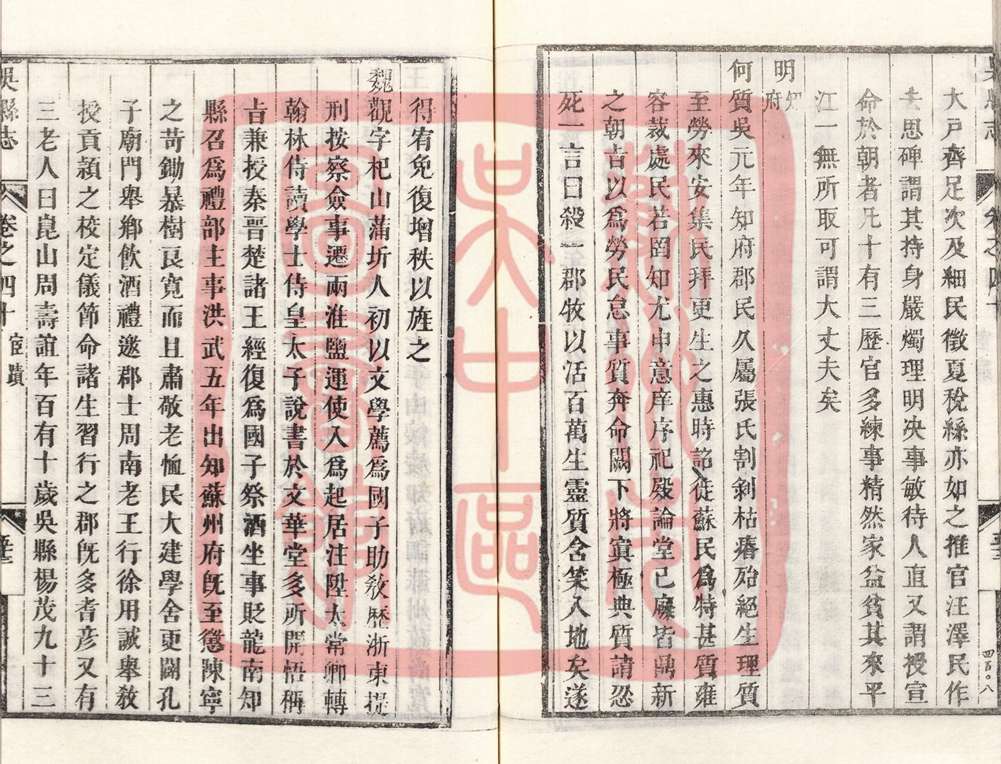 吳縣志
卷之四十
大戶齊足次及細民徵夏稅絲亦如之推官汪澤民作
去思碑謂其持身嚴燭理明決事敏待人直又謂授宣
命於朝者凡十有三歷官多練事精然家益貧其來平
江一無所取可謂大丈夫矣
明知府
何質吳元年知府郡民久屬張氏割剝枯瘠殆絕生理質
至勞來安集民拜更生之惠時詔徙蘇民為特甚質雍
容裁處民若罔知尤申意庠序祀殿論堂已廨皆鼎新
之朝旨以為勞民怠事質奔命闕下將寘極典質請忍
死一言曰殺一郡牧以活百萬生靈質含笑入地矣遂
得宥免復增秩以旌之
魏觀字杞山蒲圻人初以文學薦為國子助敎歷浙東提
刑按察僉事遷兩淮鹽運使入為起居注陞太常卿轉
翰林侍讀學士侍皇太子說書於文華堂多所開悟稱
旨兼授秦晋楚諸王經復為國子祭酒坐事貶龍南知
縣召為禮部主事洪武五年出知蘇州府旣至懲陳寧
之苛鋤暴樹良寬而且肅敬老恤民大建學舍更闢孔
子廟門舉鄉飲酒禮邀郡士周南老王行徐用誠舉敎
授貢潁之校定儀節命諸生習行之郡旣多耆彦又有
三老人曰崑山周壽誼年百有十歲吳縣楊茂九十三
吳縣志
卷之四十 宦蹟
四百〇八
蘇州市
吳中區
圖書館